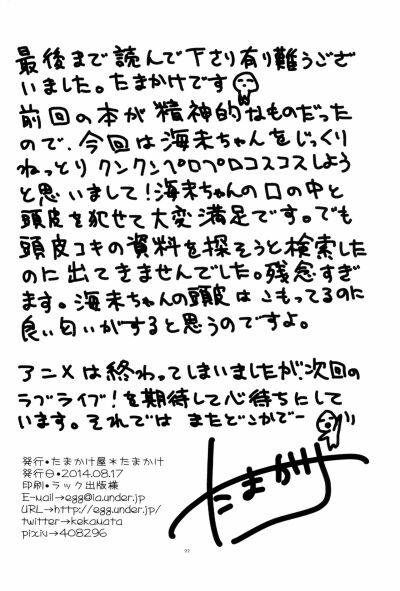 最後まで読んで下さり有り難うござ
いました。たまかけです
前回の本が精神的なものだった
ので、今回は海未ちゃんをじっくり
ねっとりクンクンペロペロコスコスしよう
と思いまして!海未ちゃんの口の中と
頭皮を犯せて大変満足です。でも
頭皮コキの資料を探そうと検索した
のに出てきませんでした。残念すぎ
ます。海未ちゃんの頭皮はこもってるのに
良い匂いがすると思うのですよ。
アニメは終わってしまいましたが、次回の
ラブライブ!を期待して心待ちにして
います。それでは またどこかでー
たまかけ
発行・たまかけ屋*たまかけ
発行日・2014.08.17
印刷・ラック出版様
E-mail→egg@ia.under.jp
URL→http://egg.under.jp/
twitter→kekamata
pixiv→408296
22